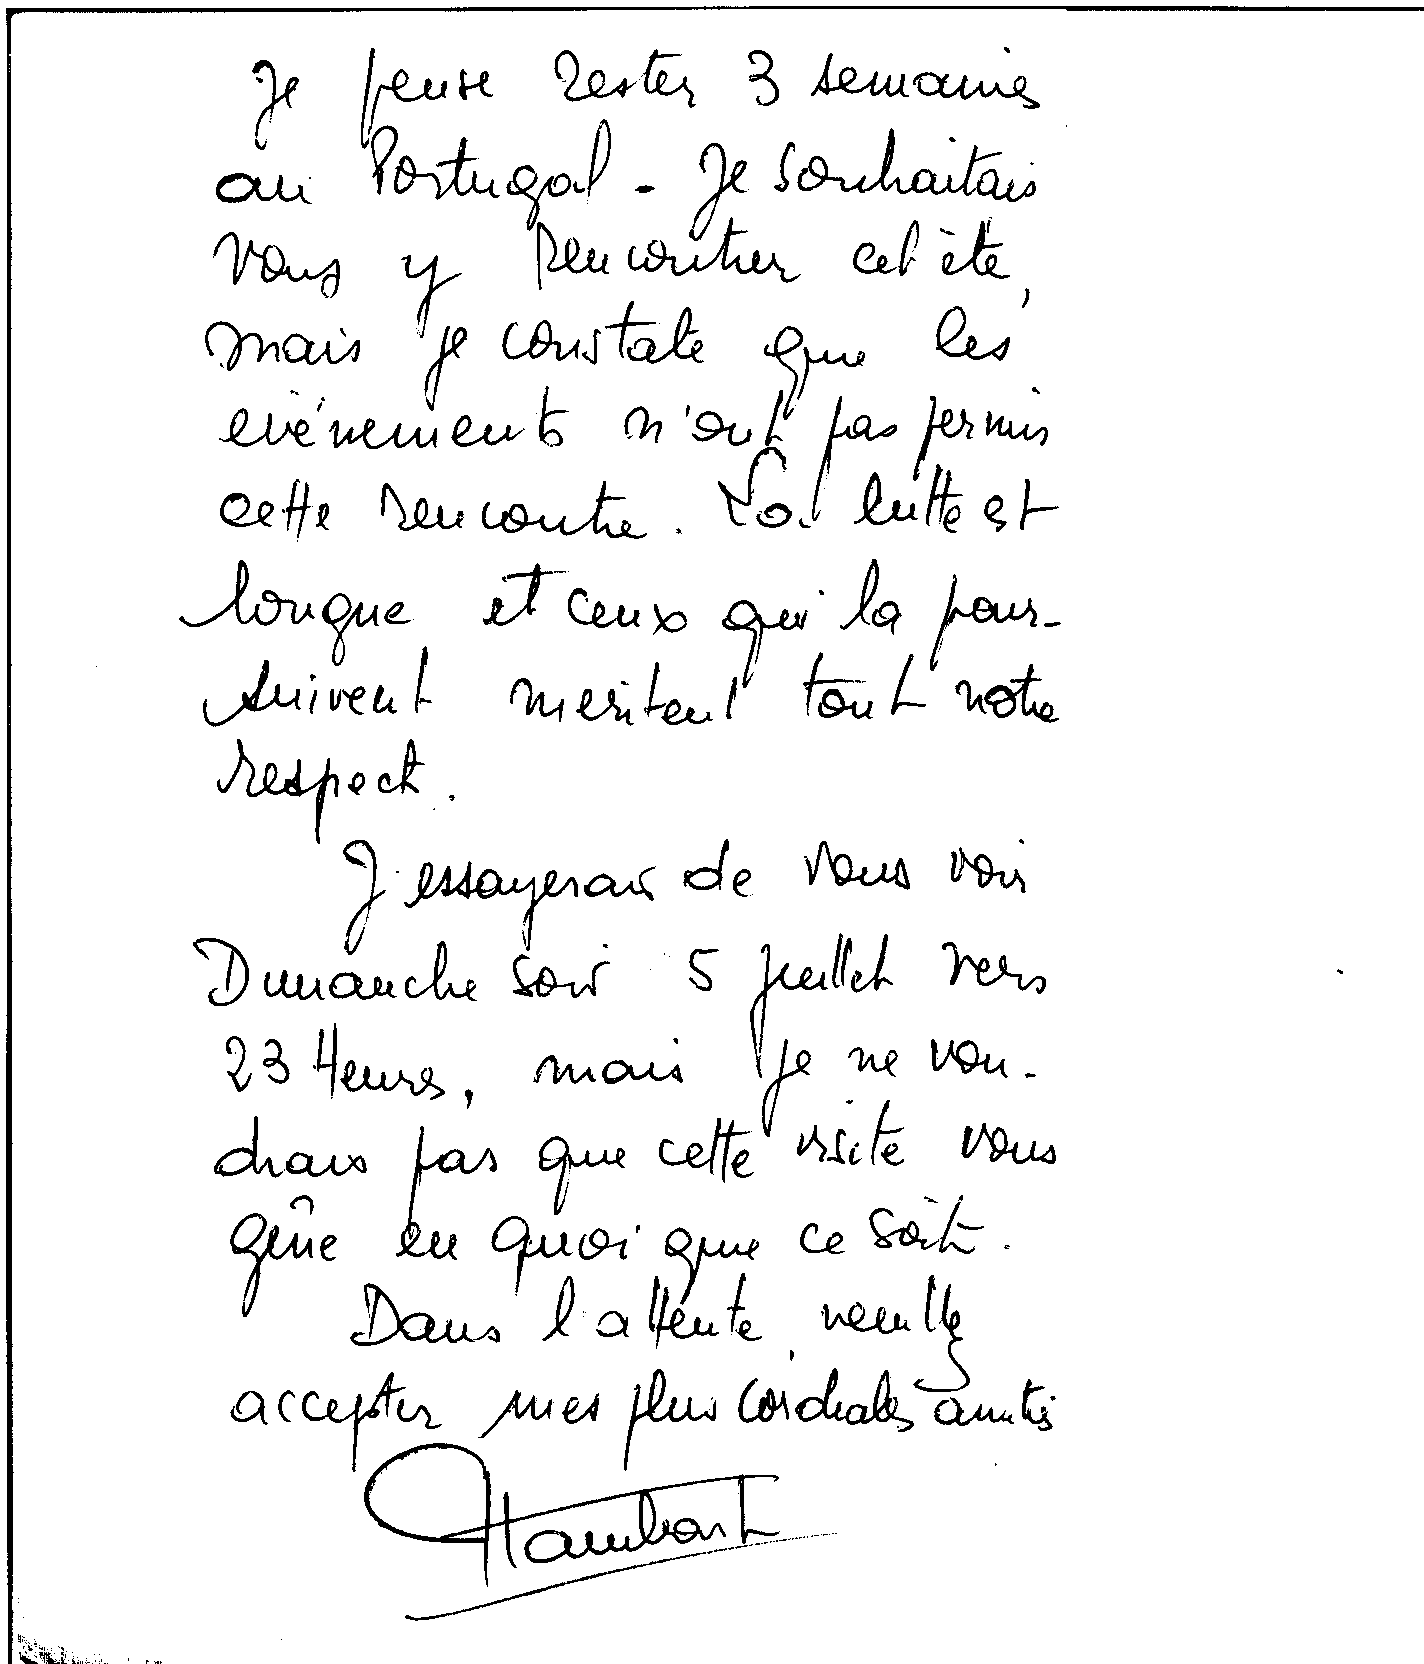 Je pense rester 3 semaines
au Portugal - Je souhaitais
vous y rencontrer cet été,
mais je constate que les
evénements n'ont pas permis
cette rencontre. La lutte est
longue et ceux qui la pour-
suivent meritent tout notre
respect.
J'essayerais de vous voir
Dimanche soir 5 juillet vers
23 Heures, mais je ne vou-
drais pas que cette visite vous
gêne en quoi que ce soit.
Dans l'attente veuillez
accepter mes plus cordiales amitiés